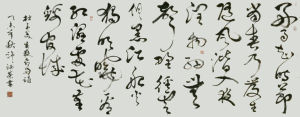 好雨知時節
當春乃發生
隨風潛入夜
潤物細無
聲野徑雲
俱黑江船火
獨明曉看
紅濕處花重
錦官城